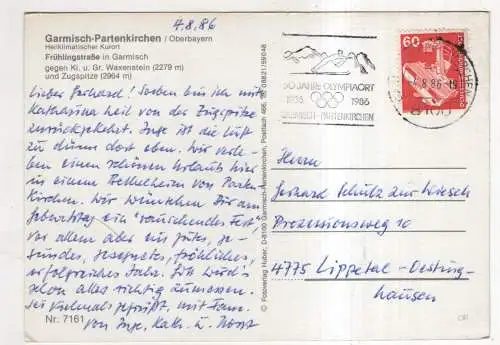 4.8.86
Garmisch-Partenkirchen / Oberbayern
Heilklimatischer Kurort
Frühlingstraße in Garmisch
gegen Kl. u. Gr. Waxenstein (2279 m)
und Zugspitze (2964 m)
Lieber Gerhard! Soeben bin ich mit
Katharina heil von der Zugspitze
zurückgekehrt. Inge ist die Luft
zu dünn dort oben. Wir verle-
ben einen schönen Urlaub hier
in einem Bethelheim von Parten-
kirchen. Wir wünschen Dir am
Geburtstag ein "rauschendes Fest",
vor allem aber ein gutes, ge-
sundes, gesegnetes, fröhliches,
erfolgreiches Jahr. Du wirst
schon alles richtig
Sei vielmals gegrüßt, mit Fam.
von Inge, Kath. u. Horst
Nr. 7161
© Fotoverlag Huber, D-8100 Garmisch-Partenkirchen, Postfach 466, Tel. 08821/59048
50 JAHRE OLYMPIAORT
1936 1986
GARMISCH-PARTENKIRCHEN
60
-4.8.86-15
8100
Herrn
Gerhard Schulz zur Wiesch
Prozessionsweg 10
4775 Lippetal-Oesting-
hausen